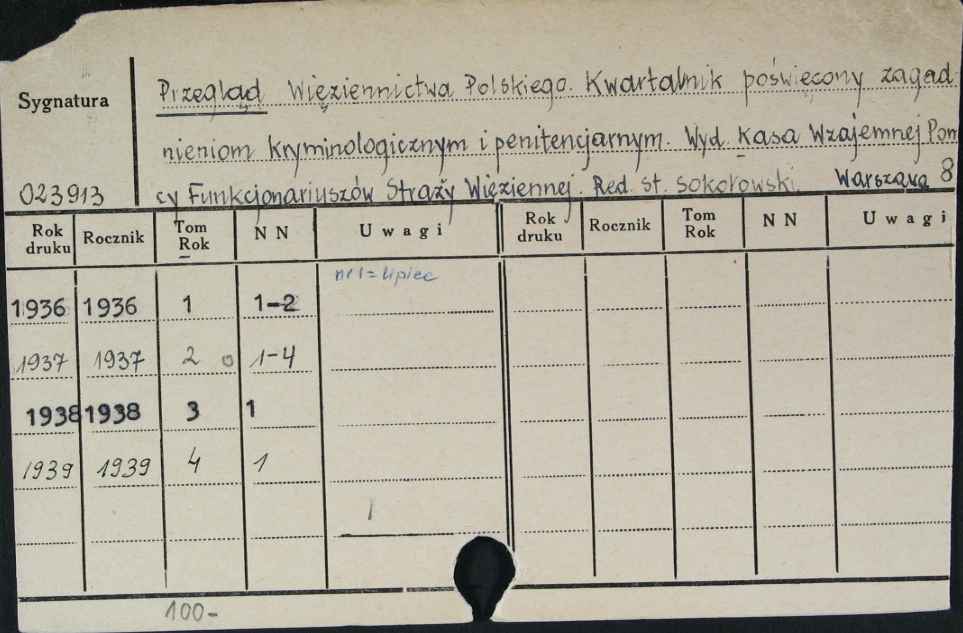 Sygnatura
Przegląd Więziennictwa Polskiego. Kwartalnik poświęcony zagad
nieniom kryminologicznym i penitencjarnym. Wyd. Kasa Wzajemnej Pom
023913 cy Funkcjonariuszów Straży Więziennej. Red. St. Sokołowski. Warszawa 8
Rok druku Rocznik Tom Rok N N Uwagi Rok druku Rocznik Tom Rok N N Uwagi
nr 1 = lipiec
1936 1936 1 1-2
1937 1937 2 o 1-4
1938 1938 3 1
1939 1939 4 1
100-